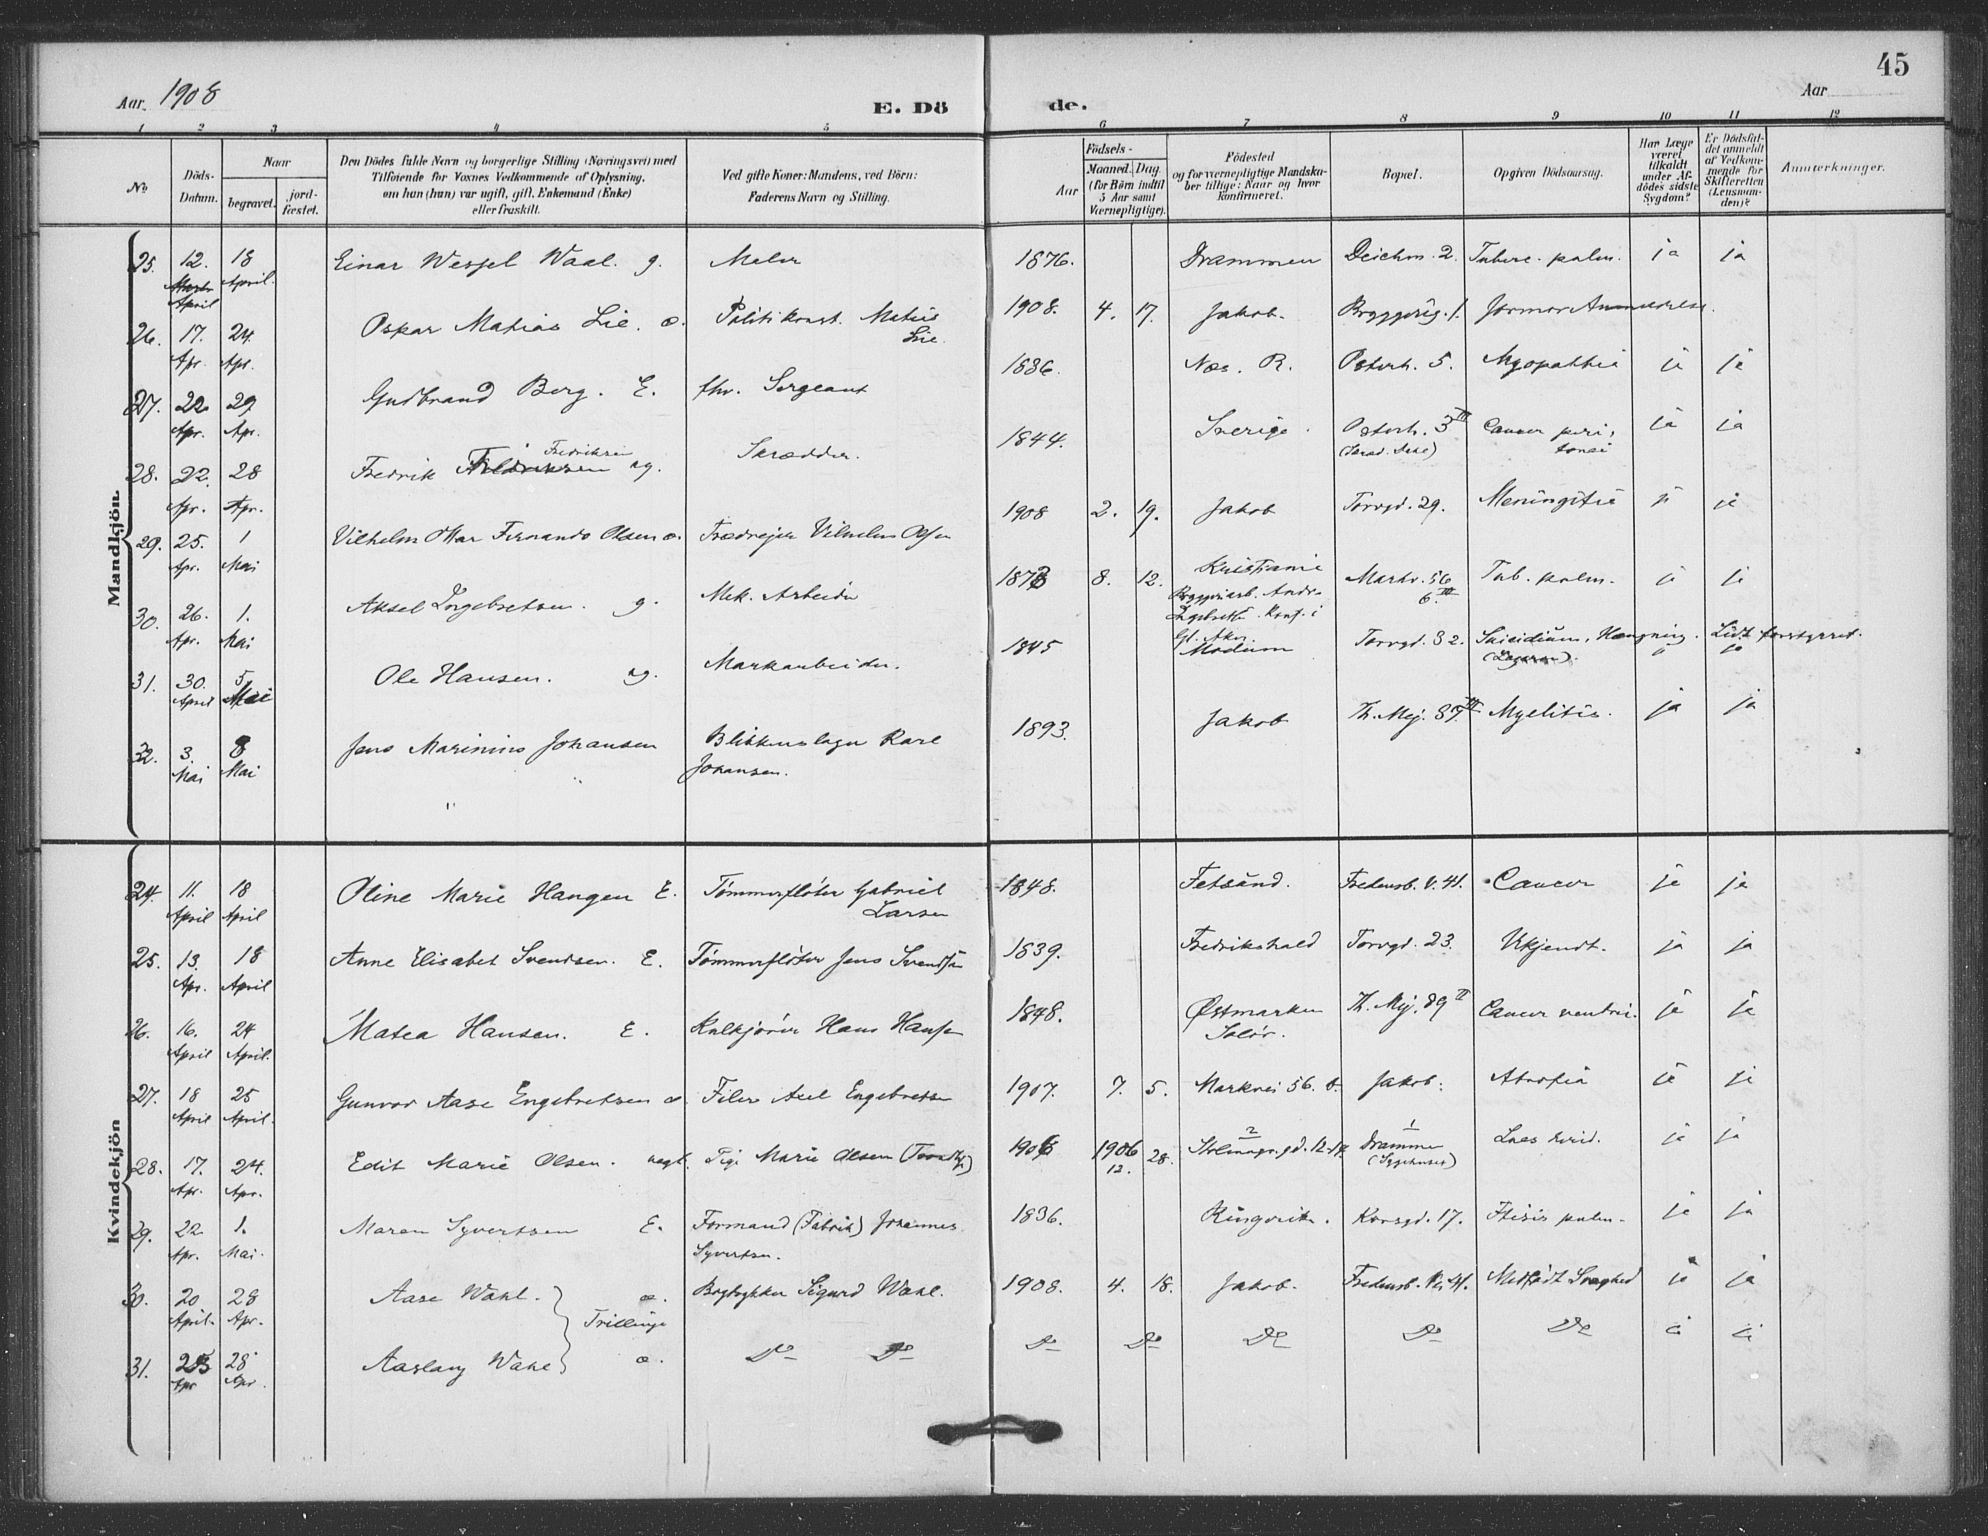 45
Aar 1908
E. Dö de.
Aar
1 2 3 4 5 6 7 8 9 10 11 12
No
Döds-Datum.
Naar
begravet.
jord-fæstet.
Den Dödes fulde Navn og borgerlige Stilling (Næringsvei) med
Tilföiende for Voxnes Vedkommende af Oplysning,
om han (hun) var ugift, gift, Enkemand (Enke)
eller fraskilt.
Ved gifte Koner: Mandens, ved Börn:
Faderens Navn og Stilling.
Födsels-
Aar
Maaned. Dag.
(for Börn indtil
5 Aar samt
Værnepligtige).
Födested
og for værnepligtige Mandska-
ber tillige: Naar og hvor
konfirmeret.
Bopæl.
Opgiven Dödsaarsag.
Har Læge
været
tilkaldt
under Af-
dödes sidste
Sygdom?
Er Dödsfal-
det anmeldt
af Vedkom-
mende for
Skifteretten
(Lensman-
den)?
Anmærkninger.
Mandkjön
25. 12. April 18 April. Einar Wessel Waal. g. Maler 1876. Drammen Deichm. 2. Tuberc. pulm. ja ja
26. 17. Apr. 24. Apr. Oskar Matias Lie. æ. Politikonst. Matias Lie. 1908. 4. 17. Jakob. 1.
27. 22 Apr. 29 Apr. Gudbrand Berg. E. fhv. Sergeant 1836. Næs. R. Osterh. 5. Myopathia ja ja
28. 22. Apr. 28 Apr. Fredrik Fredriksen ug. Skrædder. 1844. Sverige. Osterh. 3 III Cancer peri-
tonei ja ja
29. 25. Apr. 1 Mai Vilhelm Ottar Fernando Olsen æ. Vilhelm Olsen 1908 2. 19. Jakob Torvgd. 29. Meningitis ja ja
30. 26. Apr. 1. Mai Aksel Ingebretsen. g. Mek. Arbeider 1878 8. 12. Kristiania
Konf. i
Gl. Aker. Markv. 56
6. III Tub. pulm. ja ja
31. 30. April 5 Mai Ole Hansen. ug. Markarbeider. 1845 Modum Torvgd. 32. Suicidium, Hængning. ja
32. 3. Mai 8 Mai Jens Marinius Johansen Blikkenslager Karl
Johansen. 1893. Jakob Th. Mej. 87. III Myelitis. ja ja
Kvindekjön
24. 11. April 18 April Oline Marie Haugen E. Tömmerflöter Gabriel
Larsen 1848. Fetsund. Fredensb. V. 41. Cancer ja ja
25. 13. Apr. 18 April Anne Elisabet Svendsen. E. Tömmerflöter Jens Svendsen 1839. Fredrikshald Torvgd. 23. Ukjendt. ja ja
26. 16. April 24 April. Matea Hansen. E. Kulkjörer Hans Hansen 1848. Østmarken
Solör. Th. Mej. 89 II Cancer ventri. ja ja
27. 18 April 25 April. Gunvor Aase Engebretsen æ Filer Axel Engebretsen 1907. 7. 5. Markvei 56. b. Jakob. Atrofia ja ja
28. 17. Apr. 24. Apr. Edit Marie Olsen. uegt. Pige Marie Olsen 1906 1906
12. 28. 2 1
Drammen
(Sygehuset) ja ja
29. 22 Apr. 1. Mai. Maren Syvertsen E. Formand (Fabrik) Johannes
Syvertsen. 1836. Ringerike. Korsgd. 17. Ftisis pulm. ja ja
30. 20 April. 28 Apr. Aase Wahl. æ. Bogtrykker Sigurd Wahl. 1908. 4. 18. Jakob. Fredensb. V. 41. Medfödt Svaghed ja ja
Trillinge
31. 25 Apr 28 Apr. Aaslaug Wahl æ. Do Do Do Do Do Do Do